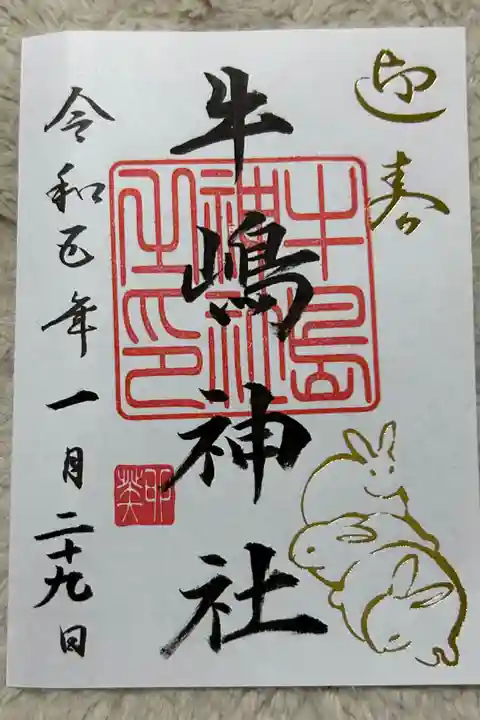 迎春
牛嶋神社
牛島
神社
之印
令和五年一月二十九日